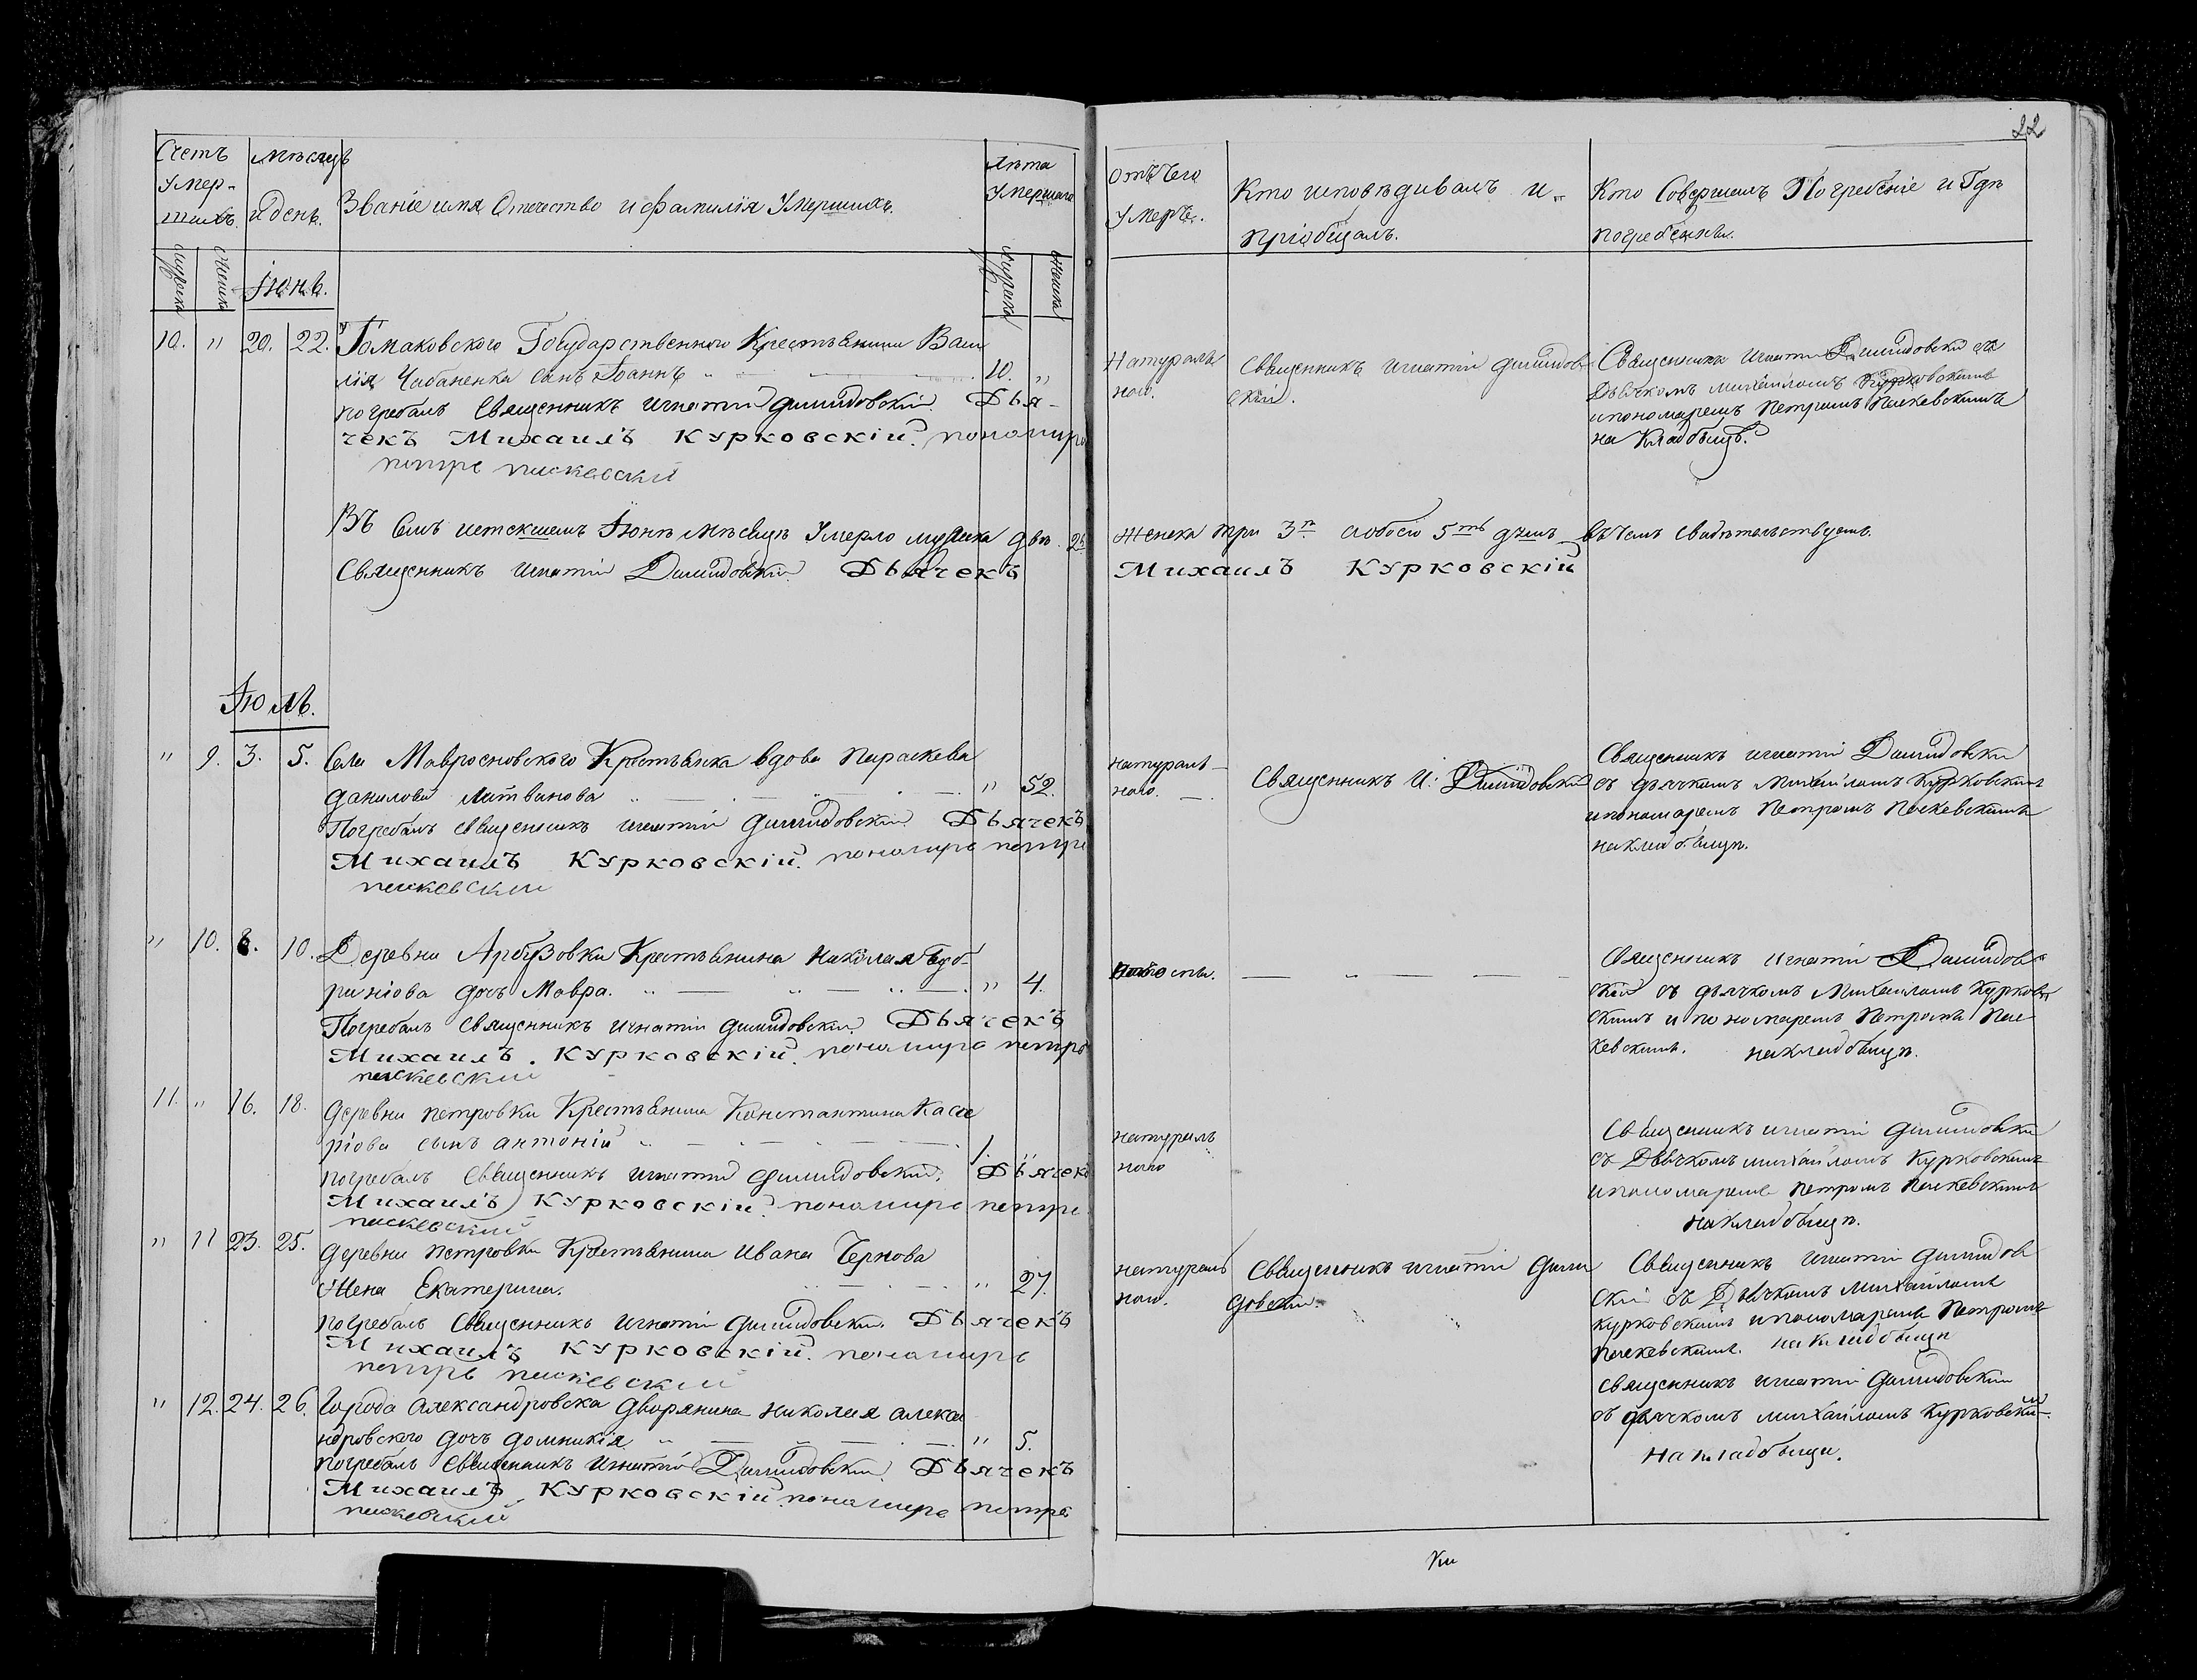 22
Счетъ Умер-шихъ.
Мѣсяцъ и день.
Званіе имя, Отечество и фамилія Умершихъ.
Лѣта Умершаго
Отъ чего Умеръ.
Кто исповѣдивалъ и пріобщалъ.
Кто Совершалъ Погребеніе и Гдѣ погребены.
Іюнь.
10. " 20. 22. Томаковского Государственного Крестьянина Васи
лія Чабаненка сынъ Іоаннъ 10. "
погребалъ Священникъ Игнатій Димидовскій. Дья-
чекъ Михаилъ Курковскій. пономаръ
петръ
Натураль
ной.
Священникъ Игнатій Димидов
скій.
Священникъ Игнатій Димидовскій съ
Дьячкомъ Михаиломъ Курковскимъ
и пономаремъ Петромъ
на Кладбищѣ.
Въ Семъ истекшемъ Іюнѣ Мѣсяцѣ Умерло мужска двѣ. 2ѣ женска три 3и обоего 5ть душъ въ чемъ свидѣтельствуемъ.
Священникъ Игнатій Димидовскій Дьячекъ Михаилъ Курковскій
Іюль.
" 9. 3. 5. Села Крестьянка вдова Параскева
Данилова Литвинова " 52.
Погребалъ священникъ Игнатій Димидовскій. Дьячекъ
Михаилъ Курковскій. пономаръ петръ
натураль-
ной.
Священникъ И: Димидовскій
Священникъ Игнатій Димидовскій
съ дьячкомъ Михаиломъ Курковскимъ
и пономаремъ Петромъ
на кладбищѣ.
" 10. 8. 10. Деревни Арбузовки Крестьянина Николая
дочь Мавра. " 4.
Погребалъ Священникъ Игнатій Димидовскій. Дьячекъ
Михаилъ Курковскій. пономаръ петръ
Священникъ Игнатій Димидов
скій съ дьячкомъ Михаиломъ Курков
скимъ и пономаремъ Петромъ
на кладбищѣ.
11. " 16. 18. Деревни Петровки Крестьянина Константина
сынъ Антоній 1. "
погребалъ Священникъ Игнатій Димидовскій. Дьячекъ
Михаилъ Курковскій. пономаръ петръ
натураль
ной
Священникъ Игнатій Димидовскій
съ Дьячкомъ Михаиломъ Курковскимъ
и пономаремъ Петромъ
на кладбищѣ.
" 11 23. 25. Деревни Петровки Крестьянина Ивана Чернова
Жена Екатерина. " 27.
погребалъ Священникъ Игнатій Димидовскій. Дьячекъ
Михаилъ Курковскій. пономаръ
петръ
натураль
ной.
Священникъ Игнатій Дими
довскій.
Священникъ Игнатій Димидов
скій съ Дьячкомъ Михаиломъ
Курковскимъ и пономаремъ Петромъ
на кладбищѣ
" 12. 24. 26. Города Александровска Дворянина Николая Алекса
ндровского дочь Домникія " 5.
погребалъ Священникъ Игнатій Димидовскій. Дьячекъ
Михаилъ Курковскій. пономаръ петръ
Священникъ Игнатій Димидовскій
съ дьячкомъ Михаиломъ Курковскимъ.
на кладбищи.